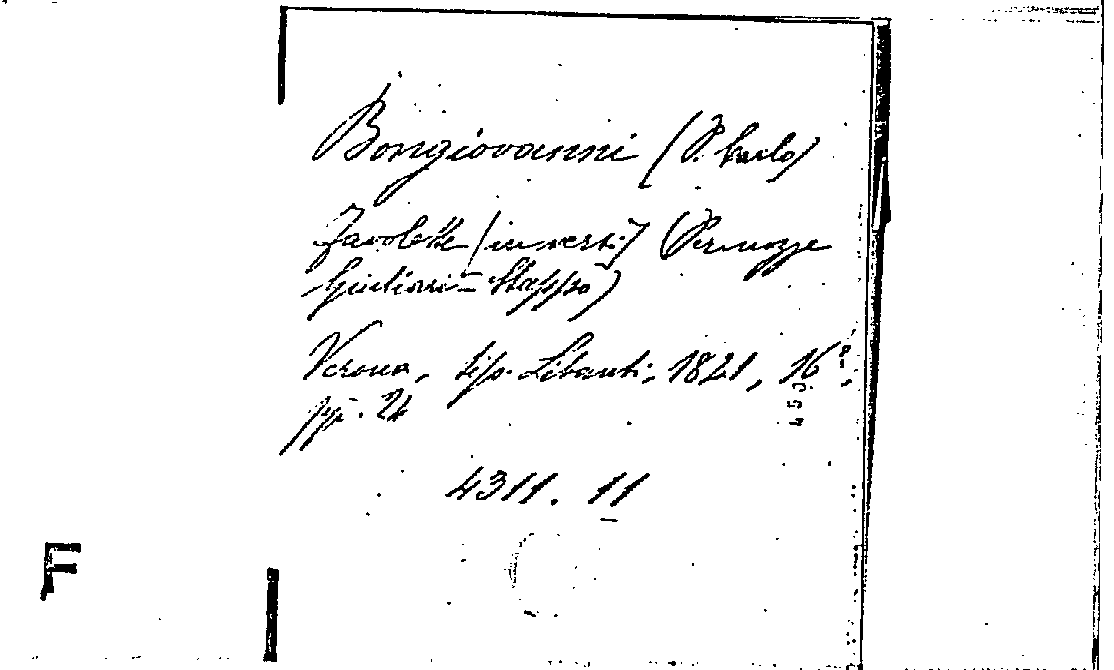 Bongiovanni (P. Carlo)
Favolette (in versi) (Per nozze
Giuliari - Stappo)
Verona, tip. Libanti, 1821, 16º,
pp. 24
4311. 11
F